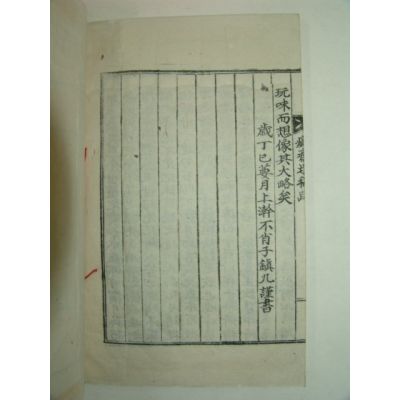 玩味而想像其大略矣
歲丁巳蓂月上澣不肖子鎭九謹書